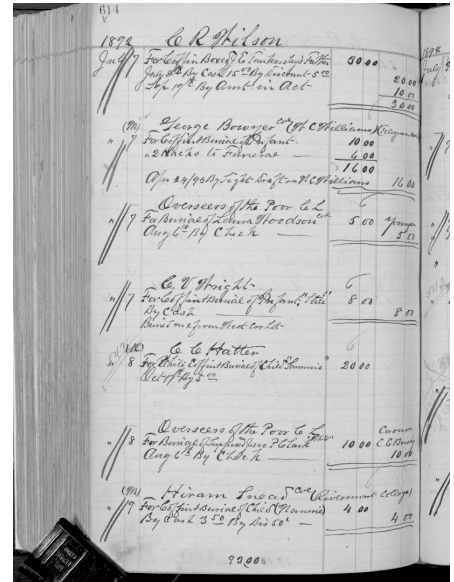 614
1892 C R Wilson
July 7 For Coffin Box & J. E. Tankersley's Father 30 00
July 8th By Cash 15 00 By Discount 5 00 20 00
Sep 19th By Amt in Act 10 00
30 00
George Bowyer Col (Of C Williams)
" 7 For Coffin & Burial of Infant 10 00
" 2 Hacks to Funeral 6 00
16 00
Apr 24/93 By Sight Draft on W C Williams 16 00
Overseers of the Poor C L
" 7 For Burial of Laura Woodson Col 5 00
Aug 6th By Check 5 00
C V Wright
" 7 For Coffin & Burial of Infant 8 00
By Cash 8 00
C C Hatter
" 8 For White Coffin & Burial of Child "Sammie" 20 00
Oct 17th By 5 00
Overseers of the Poor C L
" 8 For Burial of Jno P Clark 10 00
Aug 6th By Check 10 00
Hiram Snead Col (Rivermont College)
" 9 For Coffin & Burial of Child (Nannie) 4 00
By Cash 3 50 By Dis 50c 4 00
93 00